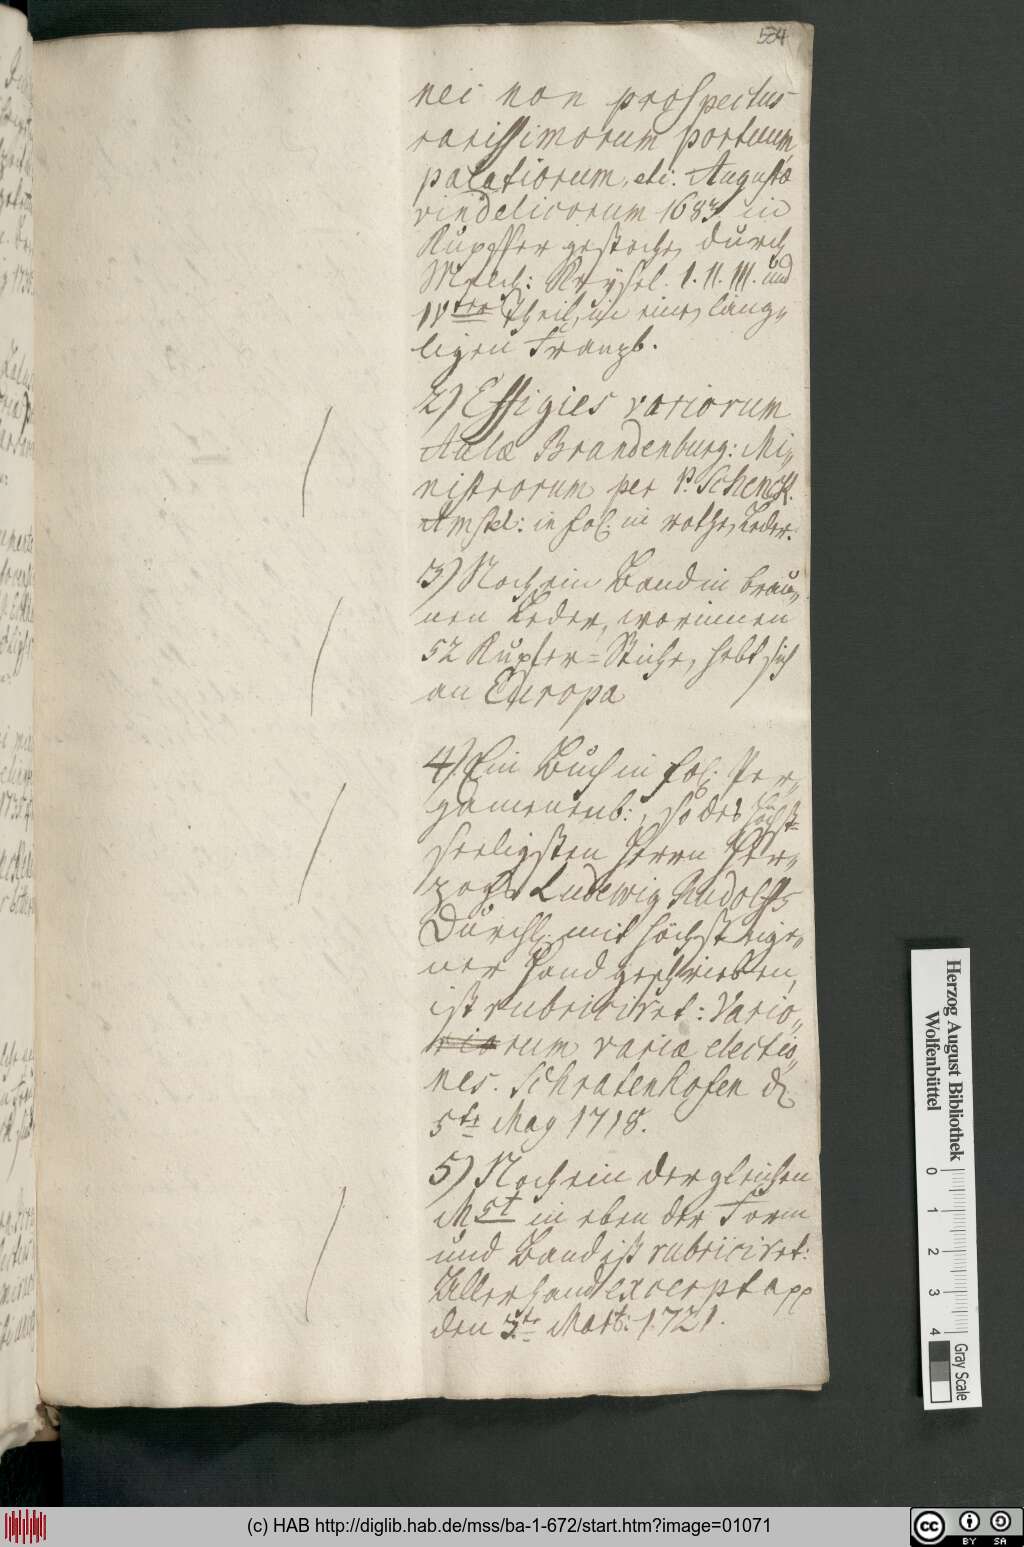 504
nei non prospectus
rarissimorum portuum,
palatiorum, etc: Augustæ
vindelicorum 1683 in
Kupffer gestochen durch
Melch: Krysel. I. II. III. und
IVten Theil, in einen läng„
ligen Franzb.
2) Effigies variorum
Aulæ Brandenburg: Mi„
nistrorum per P. Schenck.
Amstel: in fol: in rothen Leder.
3) Noch ein Band in brau„
nen Leder, worinnen
52 Kupfer=Stiche, hebt sich
an Europa
4) Ein Buch in fol: Per„
gamenenb:, so des Hochst=
seeligsten Herrn Her„
zogs Ludewig Rudolffs
Durchl: mit höchst eige„
ner Hand geschrieben,
ist rubriciret: Vario„
rum variæ electio„
nes. Schratenhofen d
5te May 1718.
5) Noch ein dergleichen
Mst in eben der Form
und Band ist rubriciret:
Allerhand excerpta pp
den 3te Mart: 1721.
Herzog August Bibliothek
Wolfenbüttel
0 1 2 3 4
Gray Scale
(c) HAB http://diglib.hab.de/mss/ba-1-672/start.htm?image=01071
cc BY SA